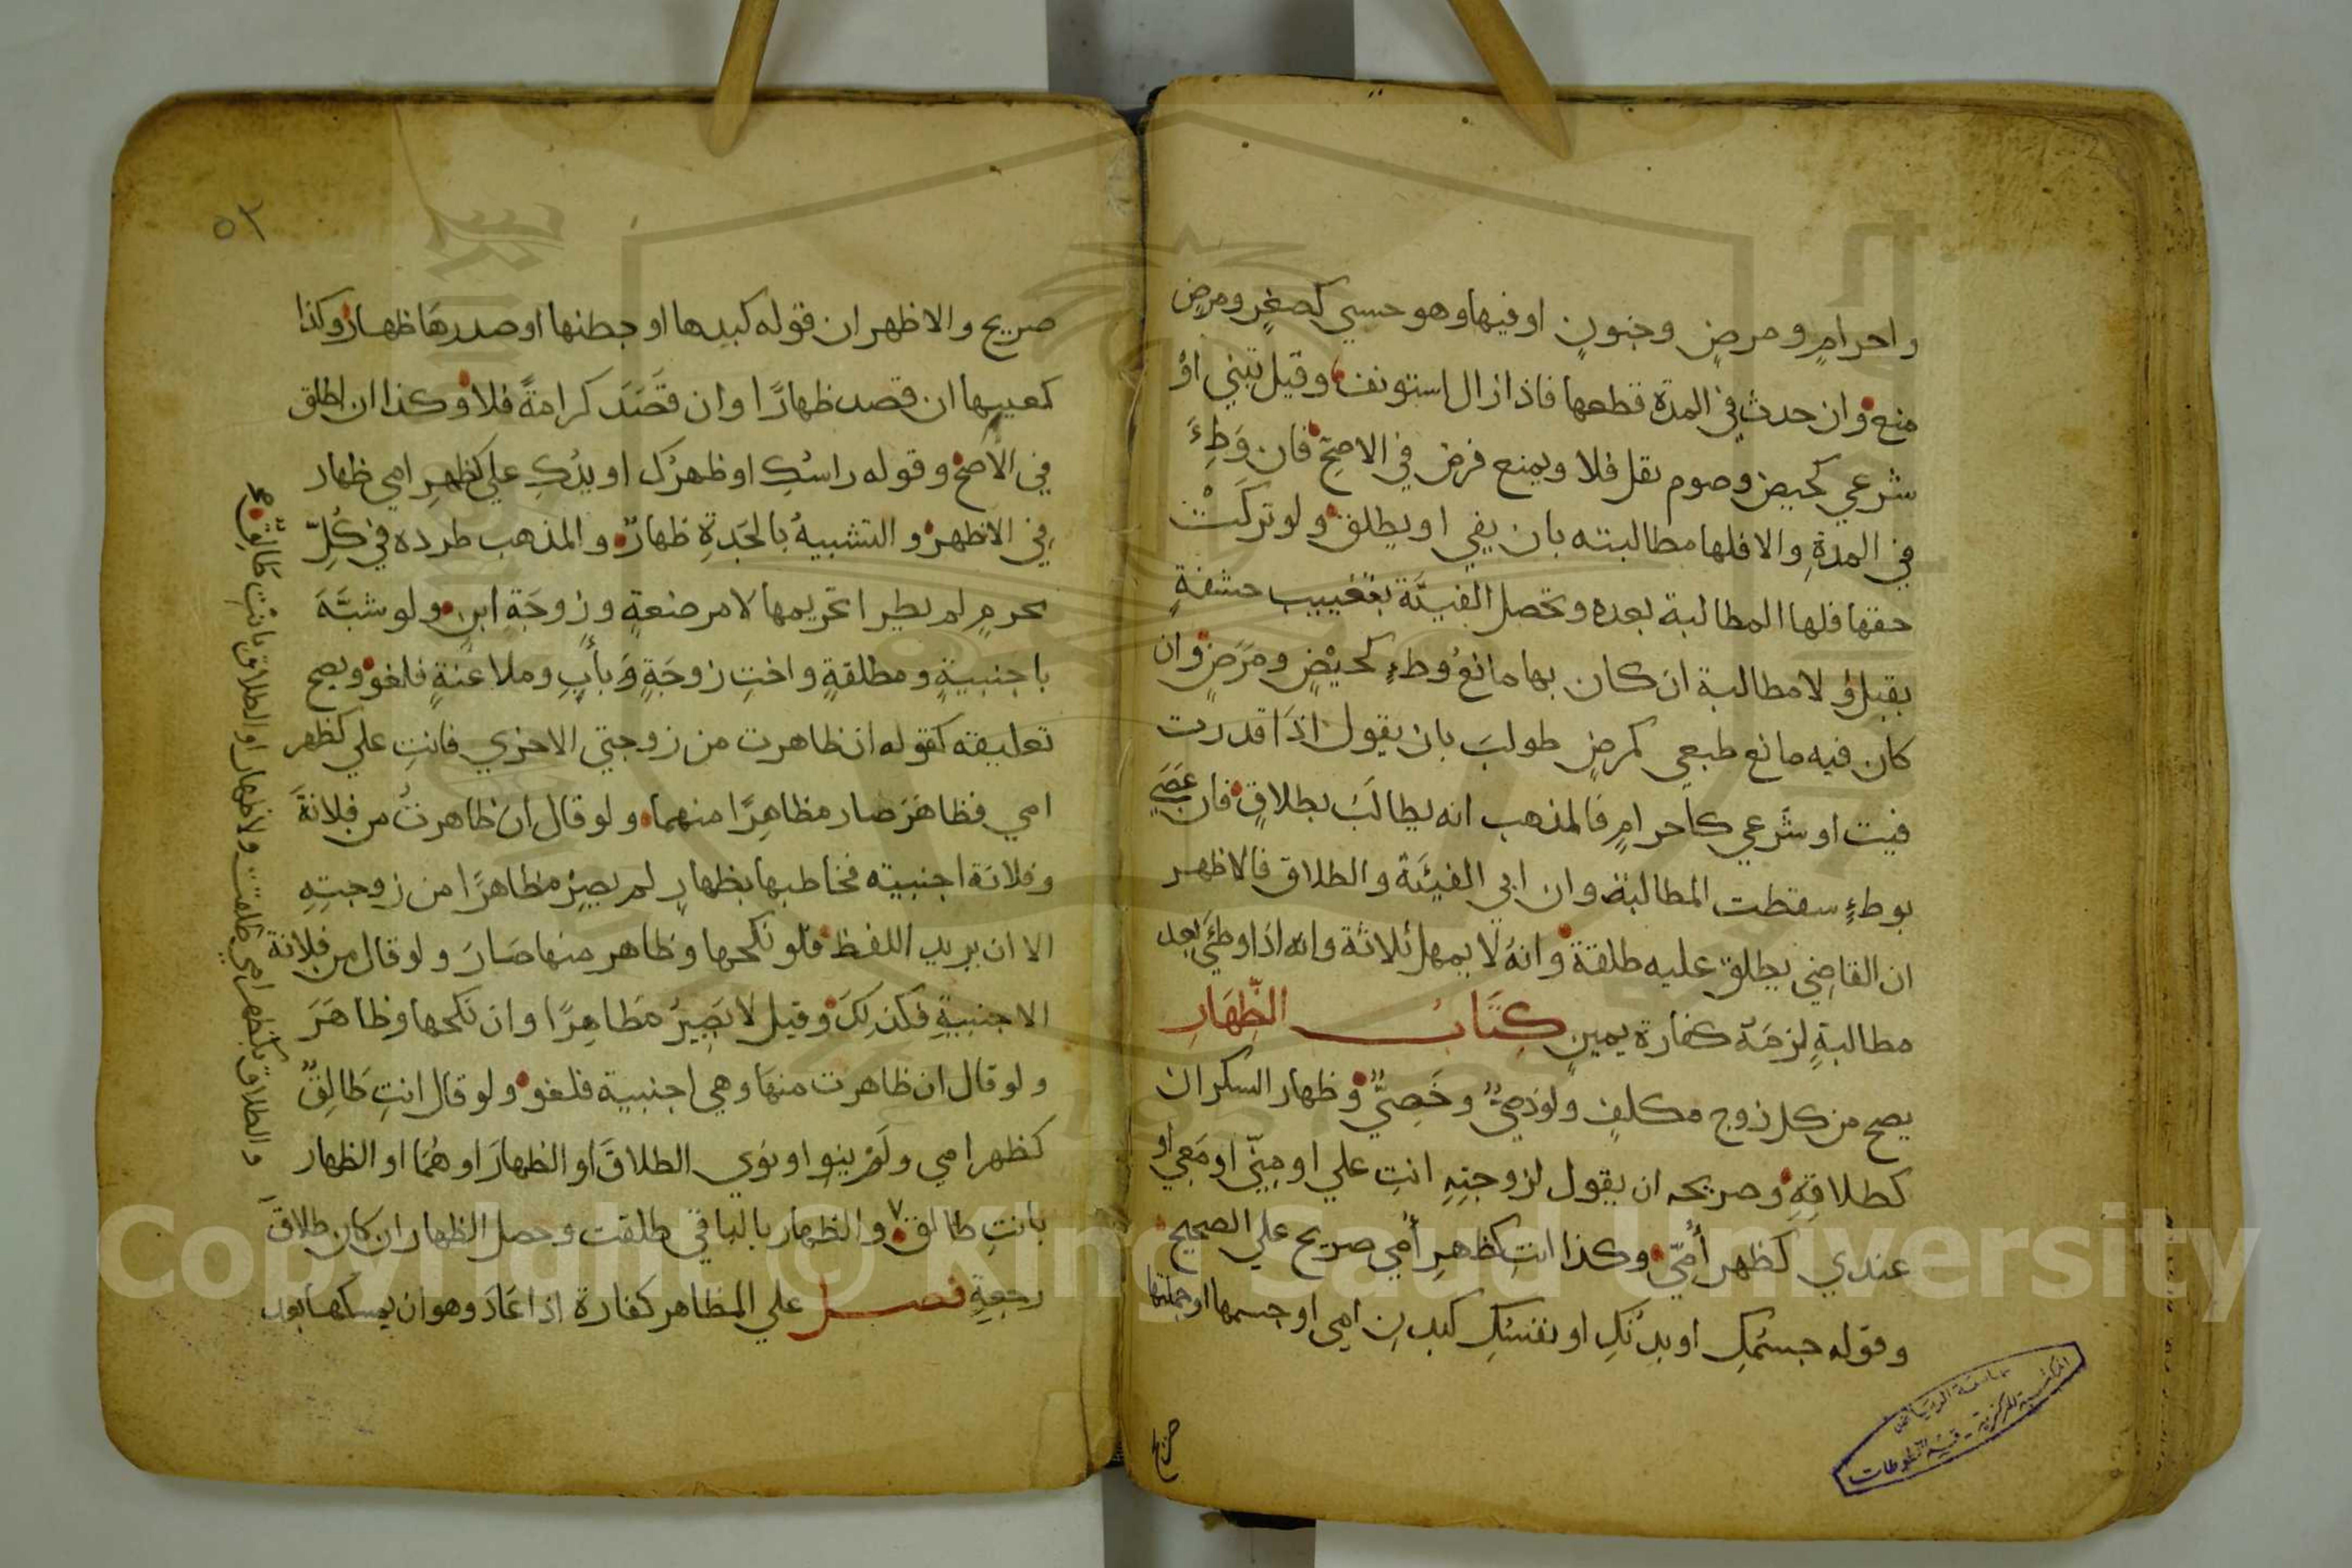 واحرامٍ ومرضٍ وجنونٍ اوفيها وهو حسي كصغرٍ ومرضٍ
منع وان حدث في المدة قطعها فاذا زال استونفت وقيل تبني او
شرعي كحيض وصوم نفل فلا ويمنع فرض في الاصح فان وَطِءَ
في المدةِ والا فلها مطالبته بان يفي او يطلق ولو تركَتْ
حقها فلها المطالبة بعده وتحصل الفيئَة بتغييب حشفةٍ
بقبل ولا مطالبة ان كان بها مانعُ وطءٍ كحيْضٍ ومرَضٍ وان
كان فيه مانع طبعي كمرضٍ طولبَ بان يقول اذَا قدرت
فيت او شَرعي كاحرامٍ فالمذهب انه يطالَبُ بطلاقٍ فان عَصَي
بوطءٍ سقطت المطالبة وان ابي الفيئَة والطلاق فالاظهر
ان القاضِي يطلق عليه طلقة وانهُ لا يمهل ثلاثة وانه اذا وطيَ بعد
مطالبةٍ لزمَهُ كفارة يمينٍ كِتَابُ الظِّهَارِ
يصح من كل زوج مكلفٍ ولو ذميٌّ وخَصِيٌّ وظهار السكران
كطلاقِهِ وصريحه ان يقول لزوجتِهِ انتِ علي او مِنِّي او مَعِي او
عندي كَظهر أُمّي وكذا انتِ كظهرِ أُمي صريح علي الصحيح
وقوله جسمُكِ او بدنُكِ او نفسُكِ كبدنِ امي او جسمها او جملتها
صريح
٥٢
صريح والاظهر ان قوله كيدها او بطنها او صدرهَا ظهار وكذا
كعينها ان قصد ظهارًا وان قَصَدَ كرامةً فلا وكذا ان اطلق
في الاصح وقوله راسُكِ او ظهرُكِ او يدُكِ علي كظهرِ امي ظهار
في الاظهر والتشبيهُ بالجَدةِ ظهارٌ والمذهب طرده في كُلِّ
محرمٍ لم يطرا تحريمها لا مرضعةٍ وزوجَةِ ابنٍ ولو شبَّهَ
باجنبيةٍ ومطلقةٍ واختِ زوجَةٍ وَبأبٍ وملاعَنةٍ فلغو ويصح
تعليقه كقوله ان ظاهرت من زوجتي الاخري فانتِ علي كظهر
امي فظاهَرَ صار مظاهِرًا منهما ولو قال ان ظاهرتُ من فلانَةَ
وفلانة اجنبيته فخاطبها بظهارٍ لم يصِرْ مظاهرًا من زوجتِهِ
الا ان يريد اللفظ فلو نكحها وظاهر منها صَارَ ولو قال من فلانةَ
الاجنبيةِ فكذلِكَ وقيل لا يَصِيرُ مُظاهِرًا وان نكحها وظاهَرَ
ولو قال ان ظاهرت منهَا وهي اجنبية فلغو ولو قال انتِ طَالِقٌ
كظهر امي ولَمْ ينوِ او نوي الطلاقَ او الظهارَ او هُمَا او الظهار
بانتِ طالق والظهار بالباقي طلقت وحصل الظهار ان كان طلاقَ
رجعةٍ فصل علي المظاهر كفارة اذا عَادَ وهو ان يمسكها بعد
والطلاق بكظهر امي طلقت ولا ظهار او الطلاق بانتِ طَالِقٌ صح
جامعة الرياض
المكتبة المركزية - قسم المخطوطات
Copyright © King Saud University